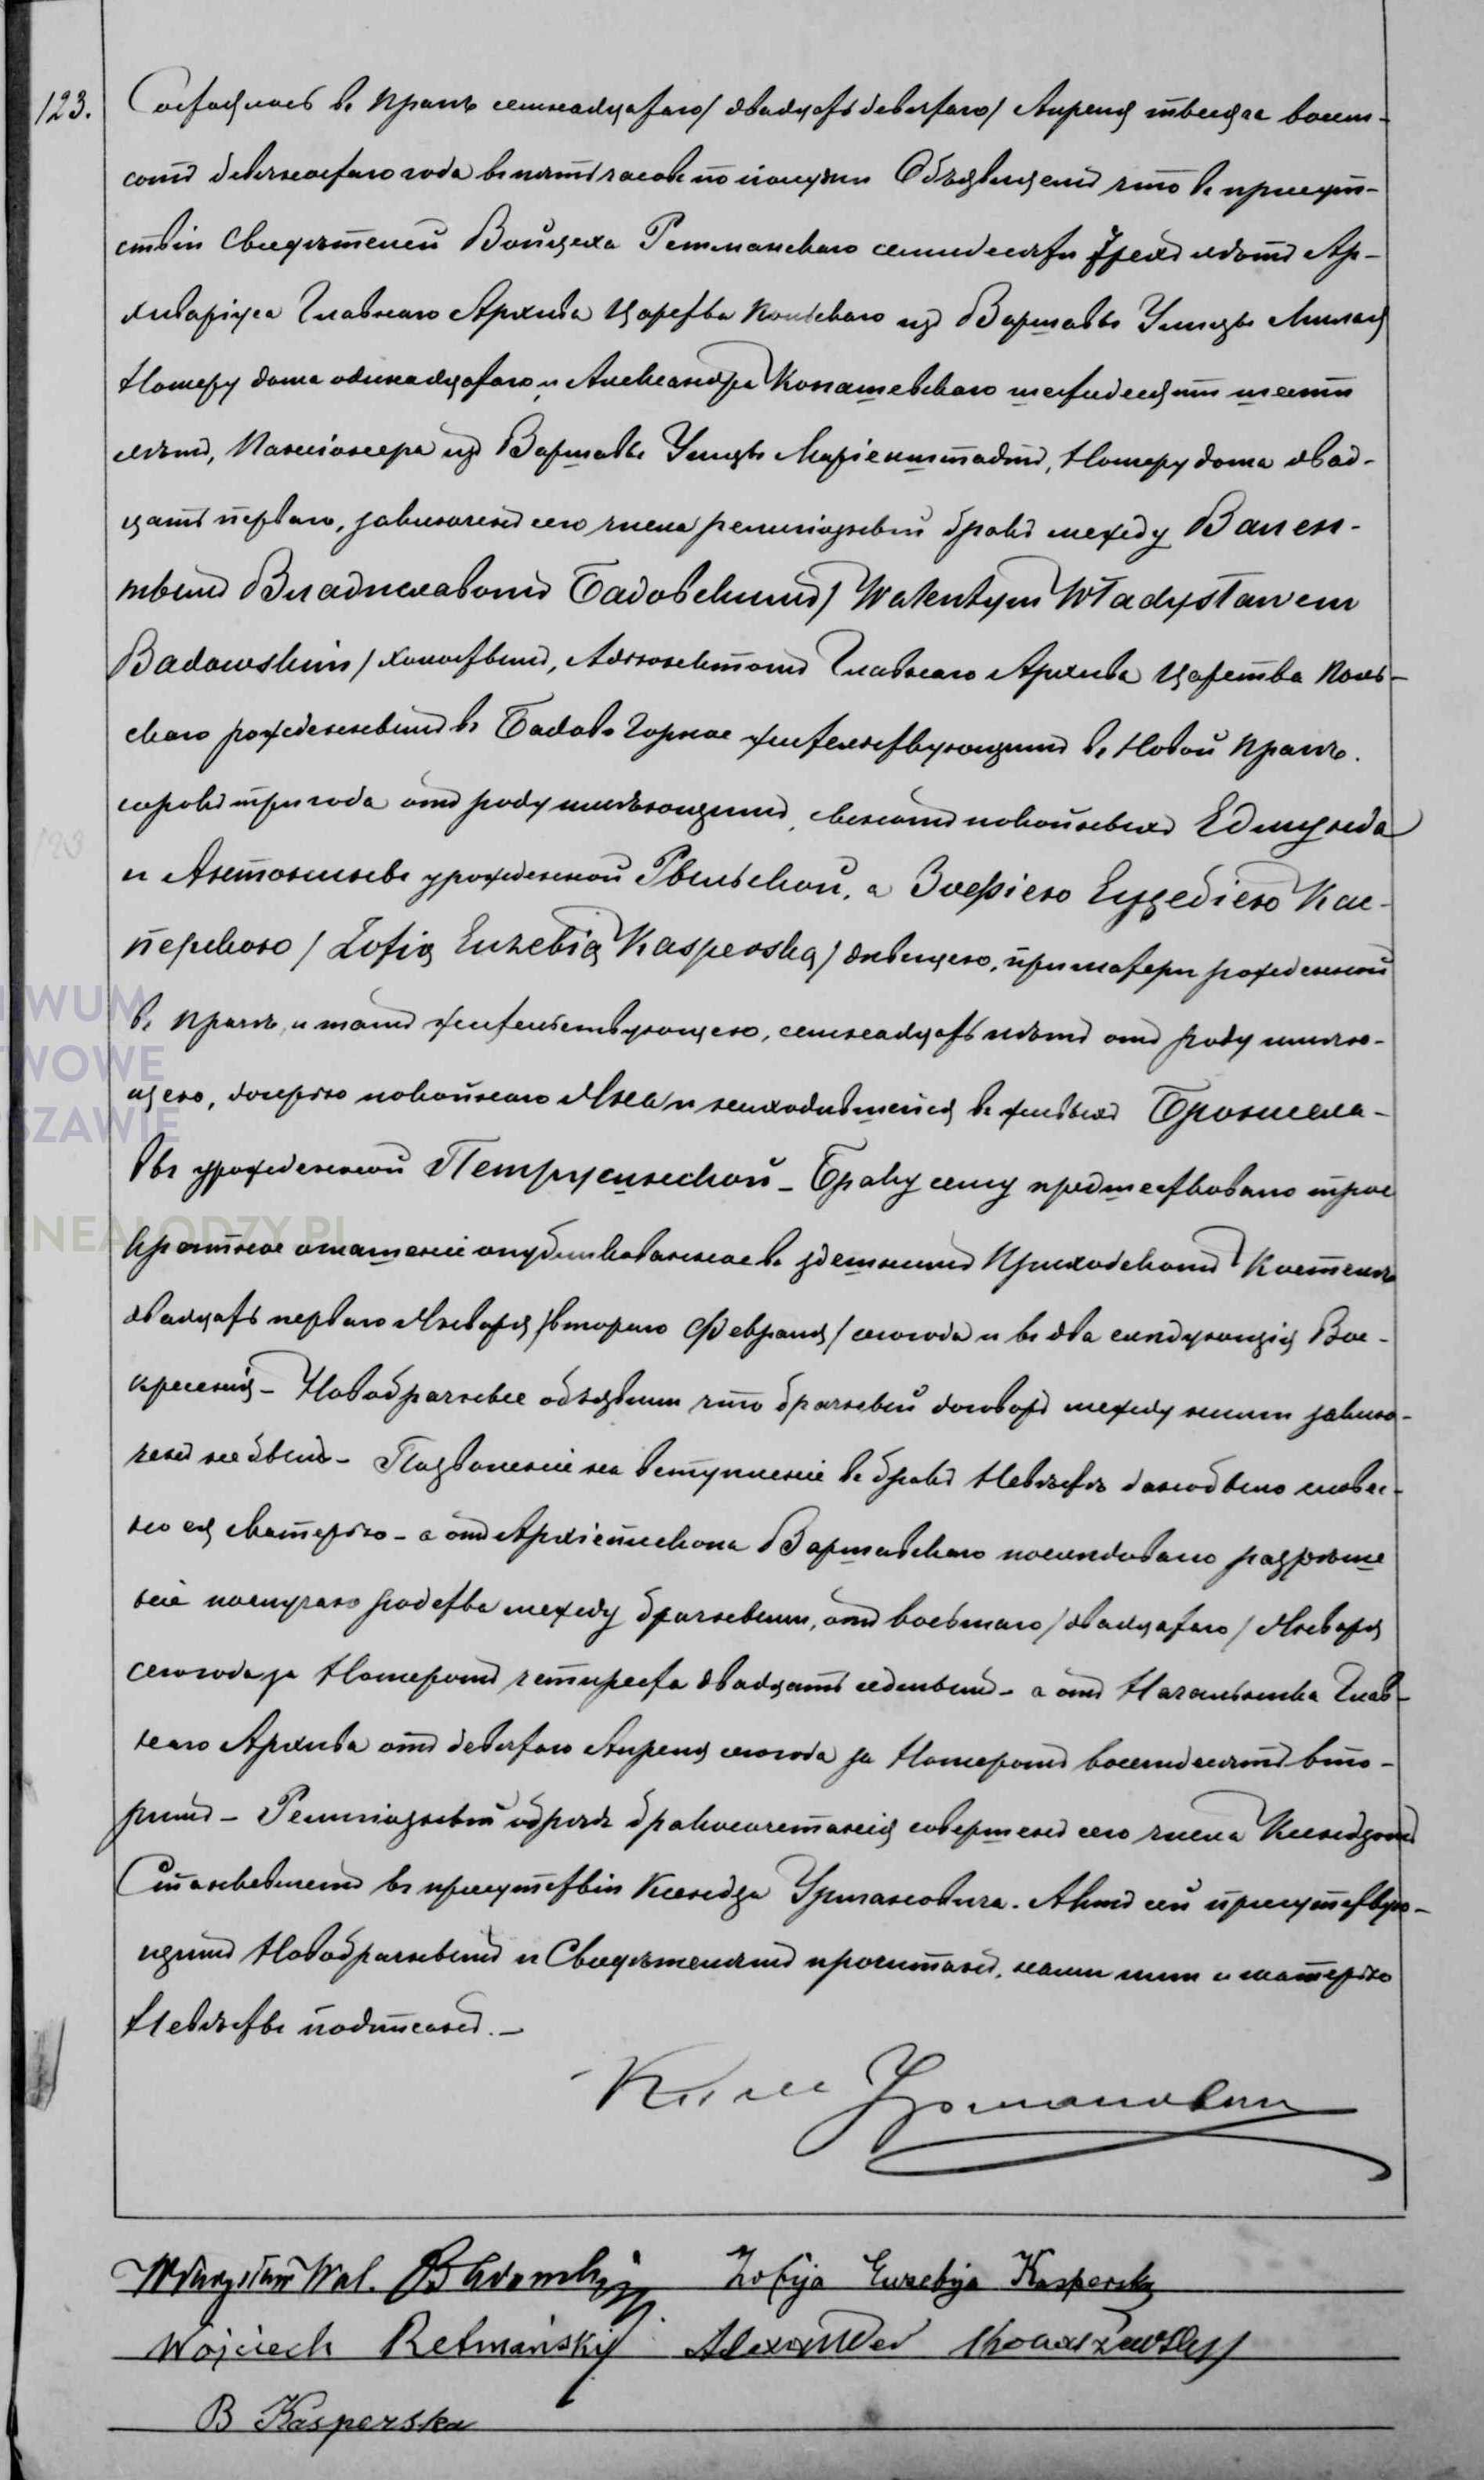 123.
Состоялось въ Прагѣ семнадцатаго / двадцать девятаго / Апреля тысяча восем-
сотъ девяностаго года въ пять часовъ по полудни Объявляемъ что въ присут-
ствіи Свидѣтелей Войцеха Ретманскаго семидесяти трехъ лѣтъ Ар-
хиваріуса Главнаго Архива Царства Польскаго изъ Варшавы Улицы Милая
Номеру дома одинадцатаго, и Александра Конашевскаго шестидесяти шести
лѣтъ, Пансіонера изъ Варшавы Улицы Маріенштадтъ, Номеру дома двад-
цать перваго, заключенъ сего числа религіозный бракъ между Вален-
тымъ Владиславомъ Бадовскимъ / Walentym Władysławem
Badowskim / холостымъ, Адъюнктомъ Главнаго Архива Царства Поль-
скаго рожденнымъ въ Бадово Горное жительствующимъ въ Новой Прагѣ.
сорокъ три года отъ роду имѣющимъ, сыномъ покойныхъ Едмунда
и Антонины урожденной Рыльской, а Зофіею Еузебіею Кас-
перскою / Zofią Euzebią Kasperską / дѣвицею, при матери рожденной
въ Прагѣ, и тамъ жительствующею, семнадцать лѣтъ отъ роду имѣю-
щею, дочерью покойнаго Яна и находившейся въ живыхъ Бронисла-
вы урожденной Петрусинской – Браку сему предшествовало трое
кратное оглашеніе опубликованное въ здешнимъ Приходскомъ Костелѣ
двадцать перваго Января / втораго Февраля / сего года и въ два следующія Вос-
кресенія – Новобрачные объявили что брачный договоръ между ними заклю-
ченъ не былъ – Позволеніе на вступленіе въ бракъ Невѣстѣ дано было словес-
но ея Матерью – а отъ Архіепископа Варшавскаго последовало разрѣше
ніе по случаю родства между брачными, отъ восьмаго / двадцатаго / Января
сего года за Номеромъ четыреста двадцать седьмымъ – а отъ Начальника Глав-
наго Архива отъ девятаго Апреля сего года за Номеромъ восемдесятъ вто-
римъ – Религіозный обрядъ бракосочетанія совершенъ сего числа Ксендзомъ
въ присутствіи Ксендза Урмановича. Актъ сей присутствую-
щимъ Новобрачнымъ и Свидѣтелямъ прочитанъ, нами ими и матерью
Невѣсты подписанъ. –
Урмановичъ
Władysław Wal. Badowski Zofija Euzebija Kasperska
Wojciech Retmański Alexander Konaszewski
B Kasperska